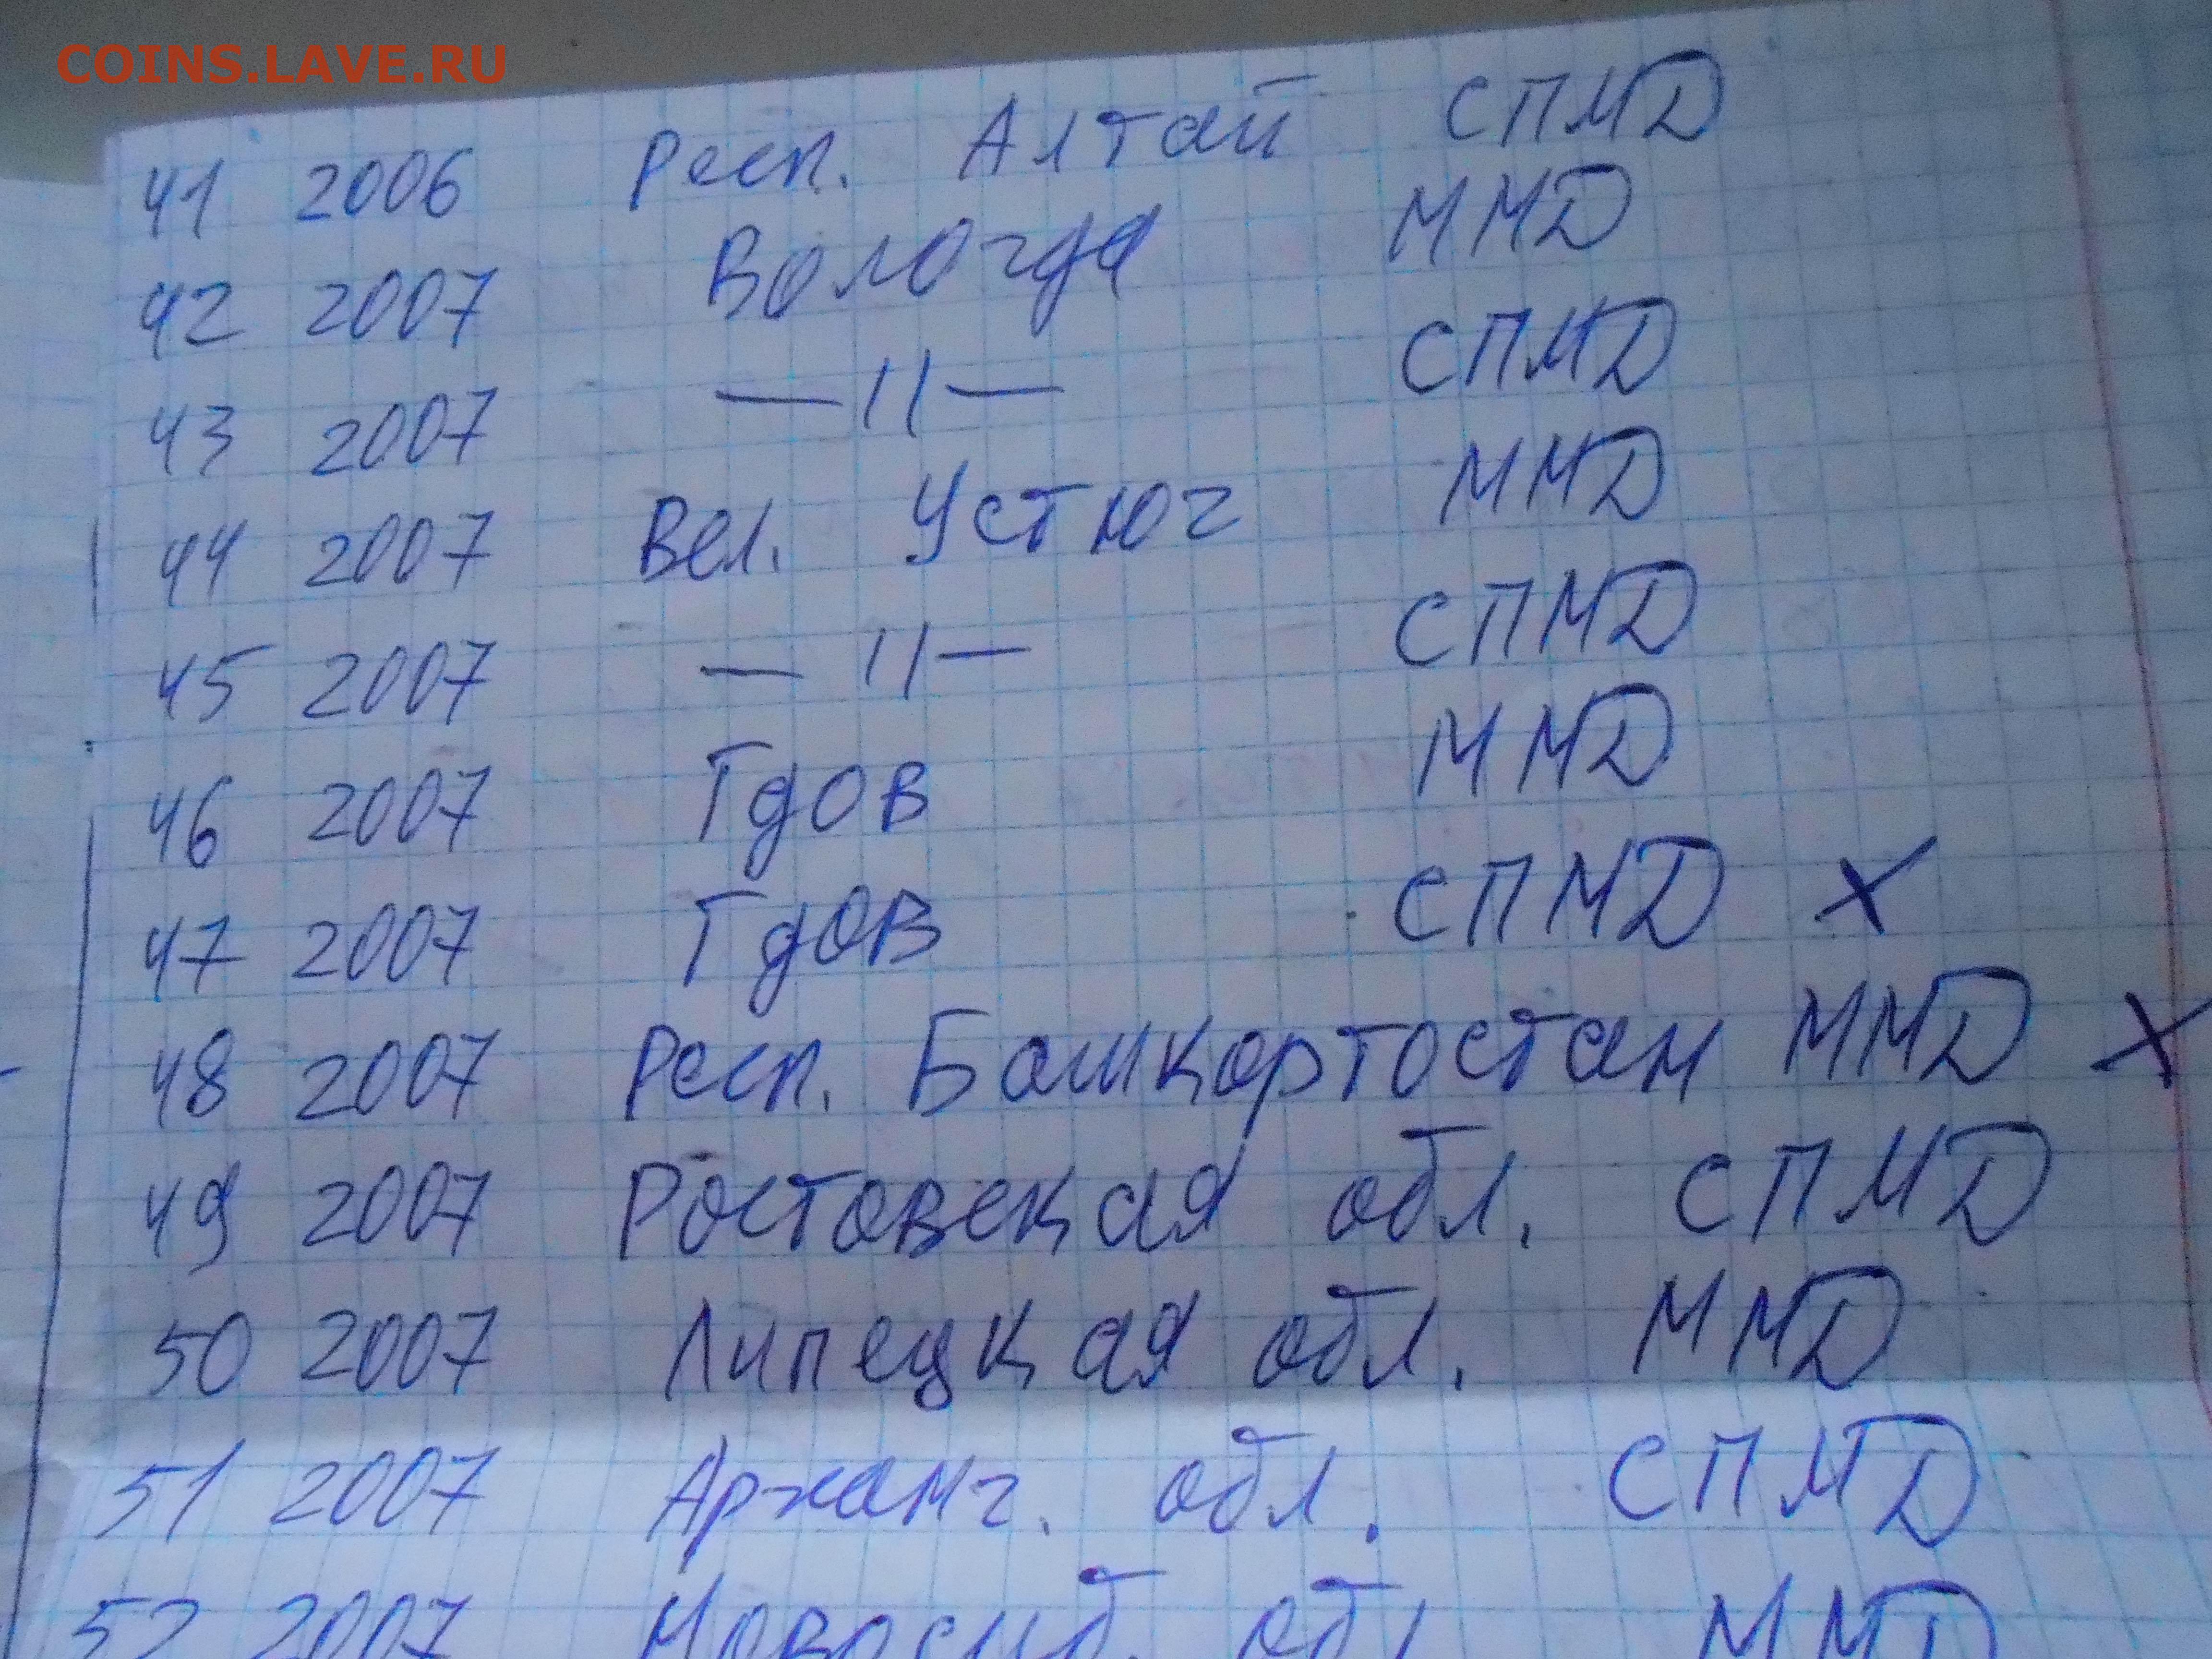 COINS.LAVE.RU
41 2006 Респ. Алтай СПМД
42 2007 Вологда ММД
43 2007 —11— СПМД
44 2007 Вел. Устюг ММД
45 2007 — 11— СПМД
46 2007 Гдов ММД
47 2007 Гдов СПМД X
48 2007 Респ. Башкортостан ММД X
49 2007 Ростовская обл. СПМД
50 2007 Липецкая обл. ММД
51 2007 Арханг. обл. СПМД
52 2007 Новосиб. обл ММД